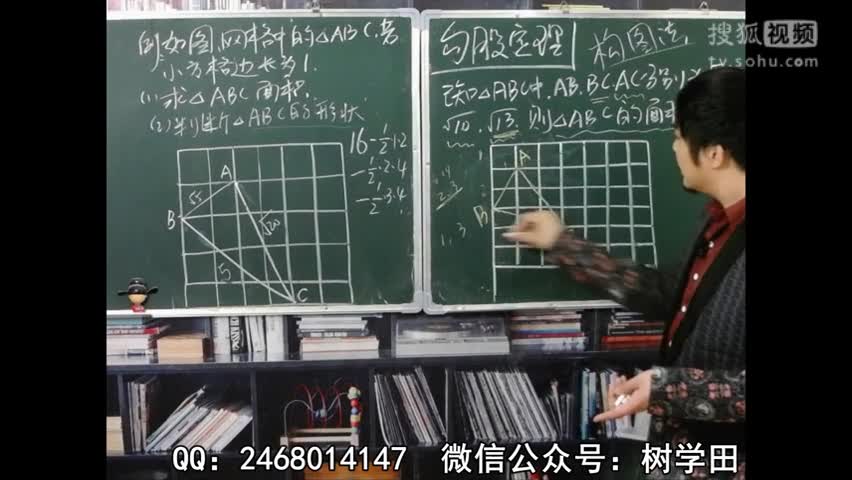 例如图,网格中的△ABC,若
小方格边长为1.
(1)求△ABC面积.
(2)判断△ABC的形状
16-½·1·2
-½·2·4
-½·3·4
A
B
C
√5
√20
5
勾股定理
构图法,
已知△ABC中,AB,BC,AC分别为
√10,√13,则△ABC的面积
A
B
1,4
2,3
1,3
搜狐视频
tv.sohu.com
QQ:2468014147 微信公众号:树学田